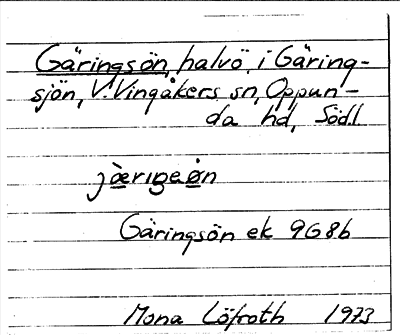 Gäringsön, halvö i Gäring-
sjön, V. Vingåkers sn, Oppun-
da hd, Södl
Gäringsön ek 9G8b
Mona Löfroth 1973